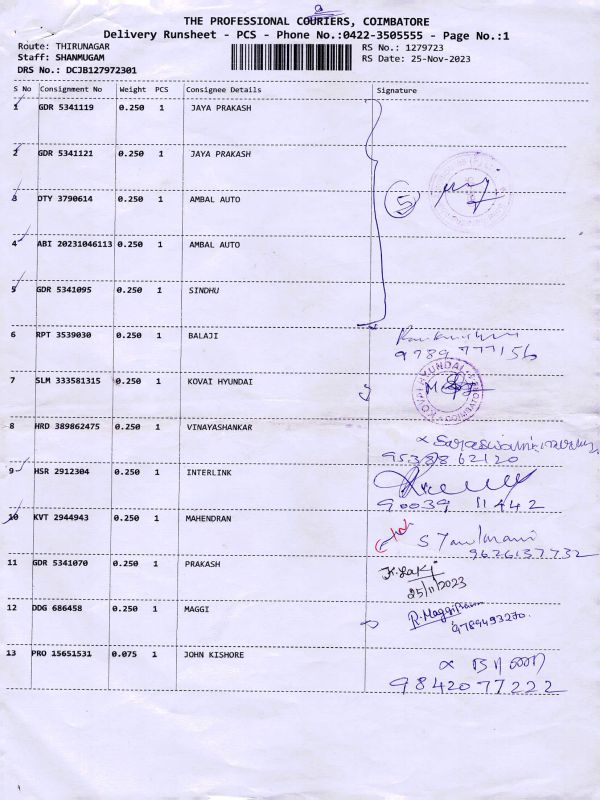 THE PROFESSIONAL COURIERS, COIMBATORE
Delivery Runsheet - PCS - Phone No.:0422-3505555 - Page No.:1
Route: THIRUNAGAR RS No.: 1279723
Staff: SHANMUGAM RS Date: 25-Nov-2023
DRS No.: DCJB127972301
S No Consignment No Weight PCS Consignee Details Signature
1 GDR 5341119 0.250 1 JAYA PRAKASH
2 GDR 5341121 0.250 1 JAYA PRAKASH
3 DTY 3790614 0.250 1 AMBAL AUTO
5
4 ABI 20231046113 0.250 1 AMBAL AUTO
5 GDR 5341095 0.250 1 SINDHU
6 RPT 3539030 0.250 1 BALAJI
9789 777156
7 SLM 333581315 0.250 1 KOVAI HYUNDAI
KOVAI HYUNDAI
COIMBATORE
8 HRD 389862475 0.250 1 VINAYASHANKAR
9538862120
9 HSR 2912304 0.250 1 INTERLINK
90039 11442
10 KVT 2944943 0.250 1 MAHENDRAN
9626137732
11 GDR 5341070 0.250 1 PRAKASH
25/11/2023
12 DDG 686458 0.250 1 MAGGI
13 PRO 15651531 0.075 1 JOHN KISHORE
9842077222